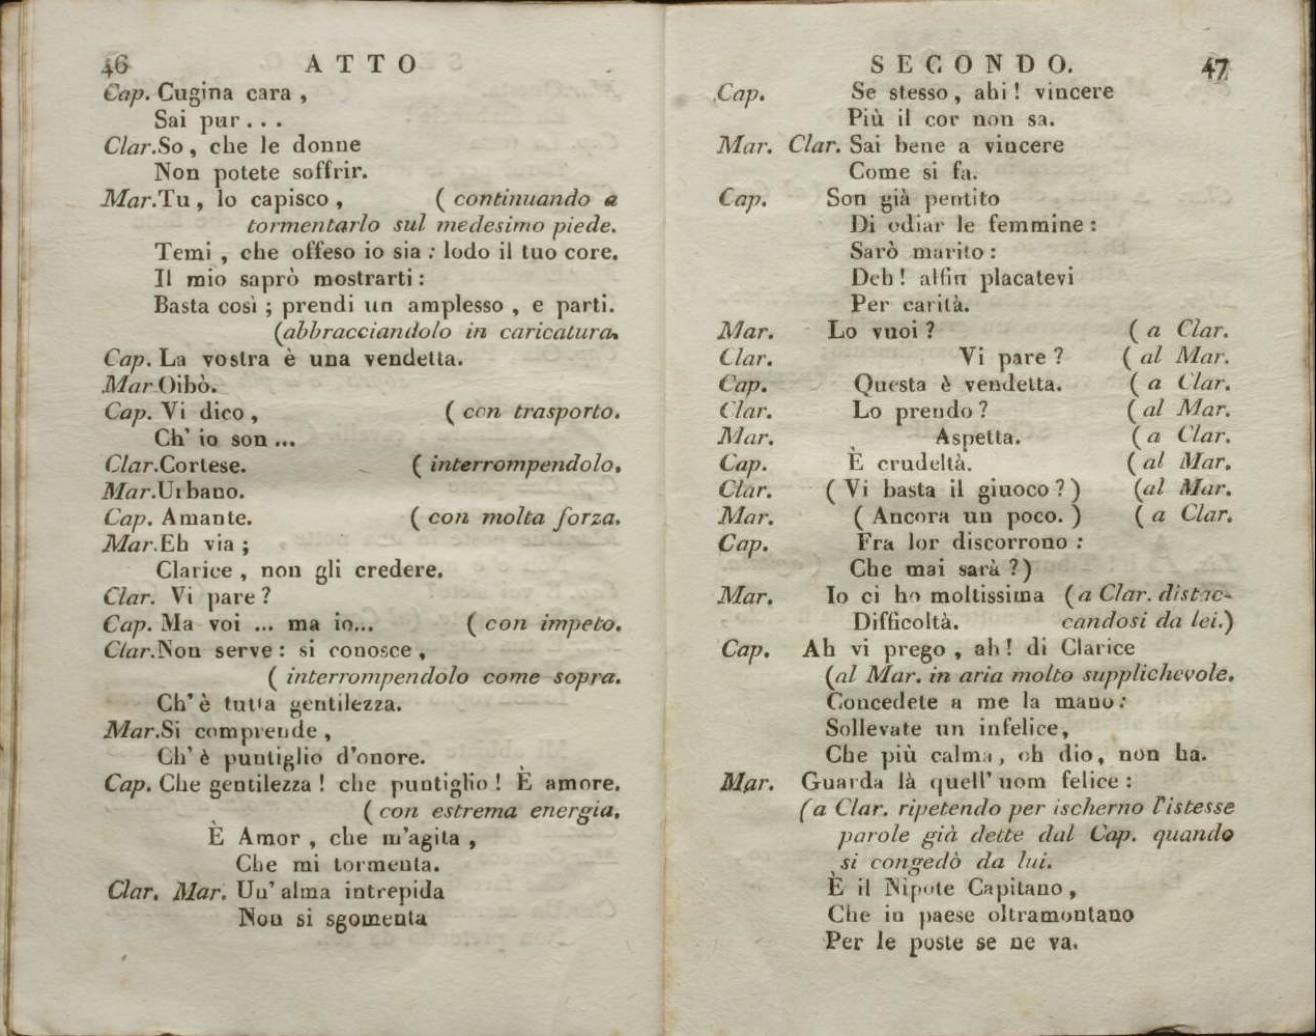 46 ATTO
Cap. Cugina cara ,
Sai pur . . .
Clar. So , che le donne
Non potete soffrir.
Mar. Tu , lo capisco , ( continuando a
tormentarlo sul medesimo piede.
Temi , che offeso io sia : lodo il tuo core.
Il mio saprò mostrarti :
Basta così ; prendi un amplesso , e parti.
(abbracciandolo in caricatura.
Cap. La vostra è una vendetta.
Mar Oibò.
Cap. Vi dico , ( con trasporto.
Ch' io son ...
Clar. Cortese. ( interrompendolo.
Mar. Urbano.
Cap. Amante. ( con molta forza.
Mar. Eh via ;
Clarice , non gli credere.
Clar. Vi pare ?
Cap. Ma voi ... ma io... ( con impeto.
Clar. Non serve : si conosce ,
( interrompendolo come sopra.
Ch' è tutta gentilezza.
Mar. Si comprende ,
Ch' è puntiglio d'onore.
Cap. Che gentilezza ! che puntiglio ! È amore.
( con estrema energia.
È Amor , che m'agita ,
Che mi tormenta.
Clar. Mar. Un' alma intrepida
Non si sgomenta
SECONDO. 47
Cap. Se stesso , ahi ! vincere
Più il cor non sa.
Mar. Clar. Sai bene a vincere
Come si fa.
Cap. Son già pentito
Di odiar le femmine :
Sarò marito :
Deh ! alfin placatevi
Per carità.
Mar. Lo vuoi ? ( a Clar.
Clar. Vi pare ? ( al Mar.
Cap. Questa è vendetta. ( a Clar.
Clar. Lo prendo ? ( al Mar.
Mar. Aspetta. ( a Clar.
Cap. È crudeltà. ( al Mar.
Clar. ( Vi basta il giuoco ? ) (al Mar.
Mar. ( Ancora un poco. ) ( a Clar.
Cap. Fra lor discorrono :
Che mai sarà ? )
Mar. Io ci ho moltissima ( a Clar. distac-
Difficoltà. candosi da lei.)
Cap. Ah vi prego , ah ! di Clarice
(al Mar. in aria molto supplichevole.
Concedete a me la mano :
Sollevate un infelice,
Che più calma, oh dio, non ha.
Mar. Guarda là quell' uom felice :
(a Clar. ripetendo per ischerno l'istesse
parole già dette dal Cap. quando
si congedò da lui.
È il Nipote Capitano ,
Che in paese oltramontano
Per le poste se ne va.